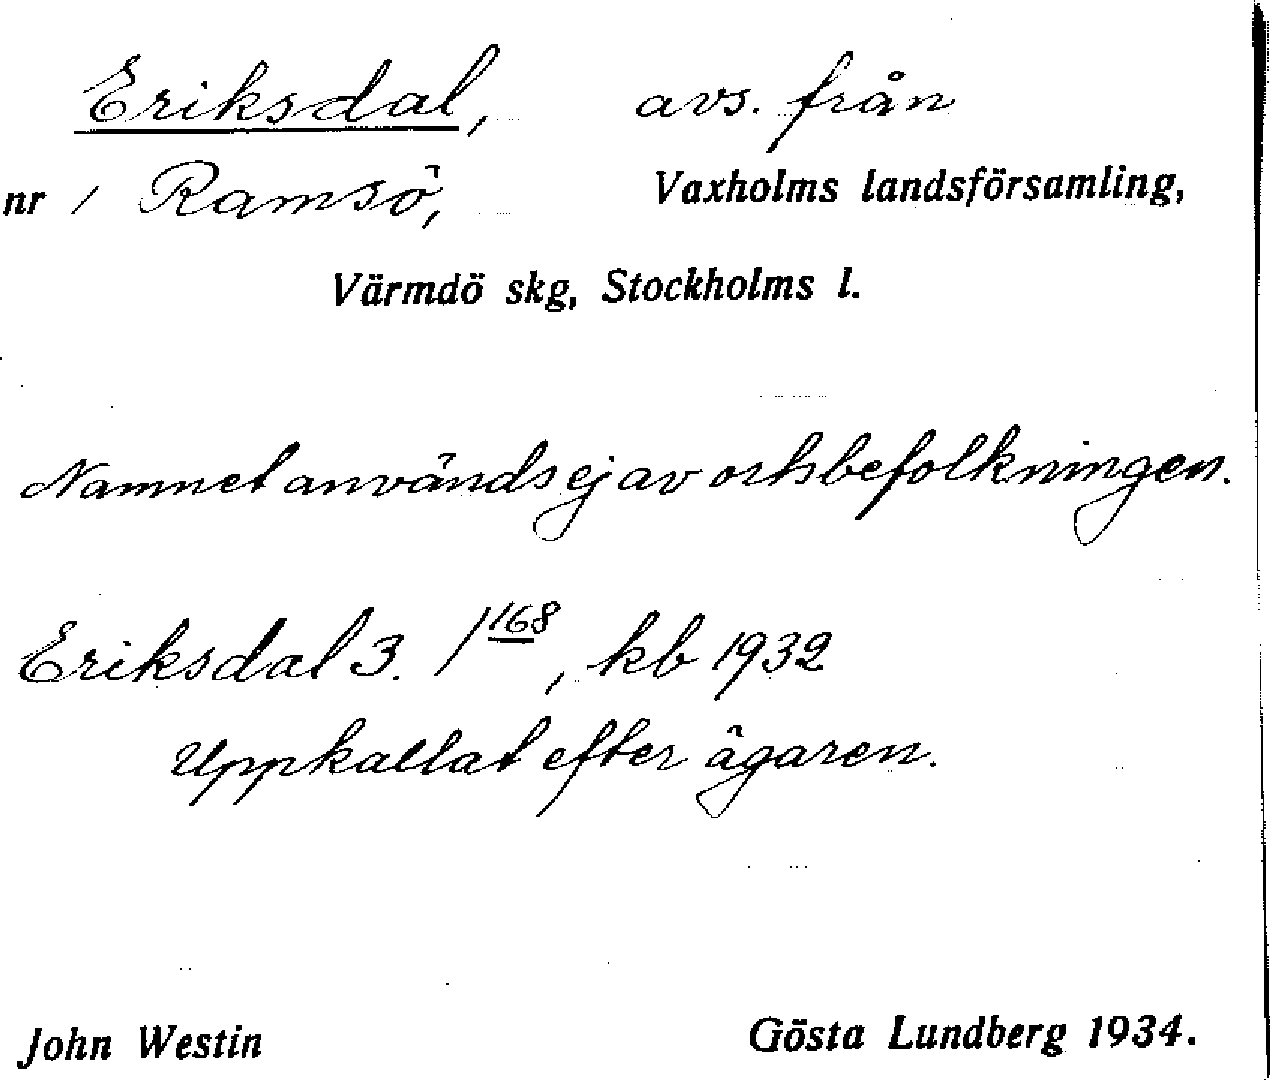 Eriksdal, avs. från
nr 1 Ramsö, Vaxholms landsförsamling,
Värmdö skg, Stockholms l.
Namnet används ej av ortsbefolkningen.
Eriksdal 3. 1168, kb 1932
Uppkallat efter ägaren.
John Westin Gösta Lundberg 1934.